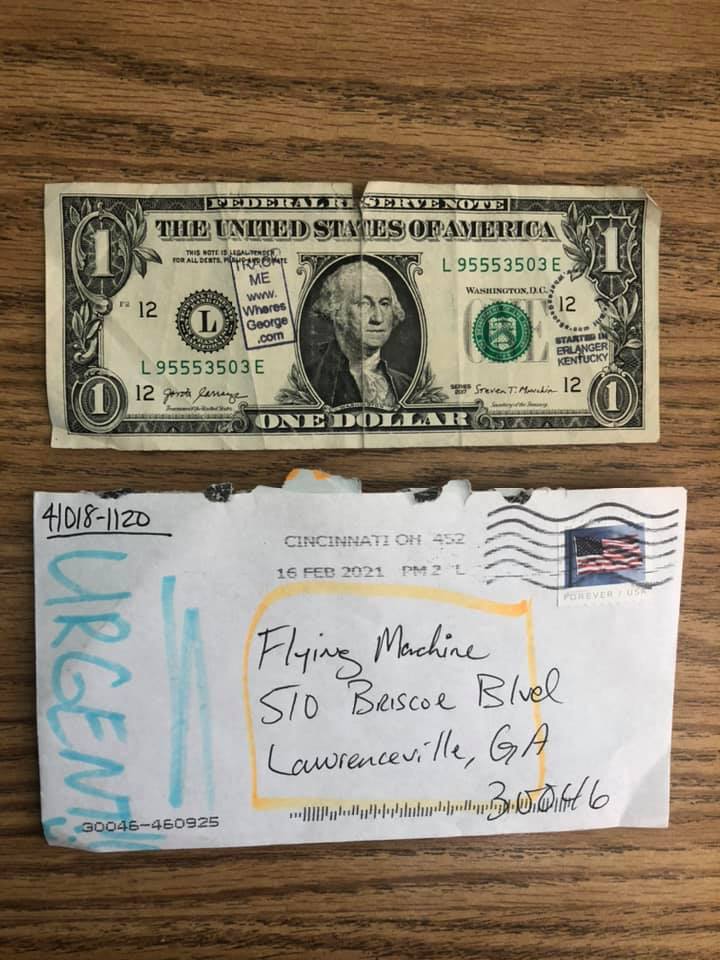 FEDERAL RESERVE NOTE
THE UNITED STATES OF AMERICA
THIS NOTE IS LEGAL TENDER
FOR ALL DEBTS, PUBLIC AND PRIVATE
TRACK
ME
www.
Wheres
George
.com
L 95553503 E
WASHINGTON, D.C.
12
L
12
STARTED IN
ERLANGER
KENTUCKY
L 95553503 E
12
SERIES
2017
Steven T. Mnuchin
12
Secretary of the Treasury
Treasurer of the United States
1
1
1
1
ONE DOLLAR
41018-1120
URGENT
CINCINNATI OH 452
16 FEB 2021 PM 2 L
FOREVER / USA
Flying Machine
510 Briscoe Blvd
Lawrenceville, GA
30046
30046-460925